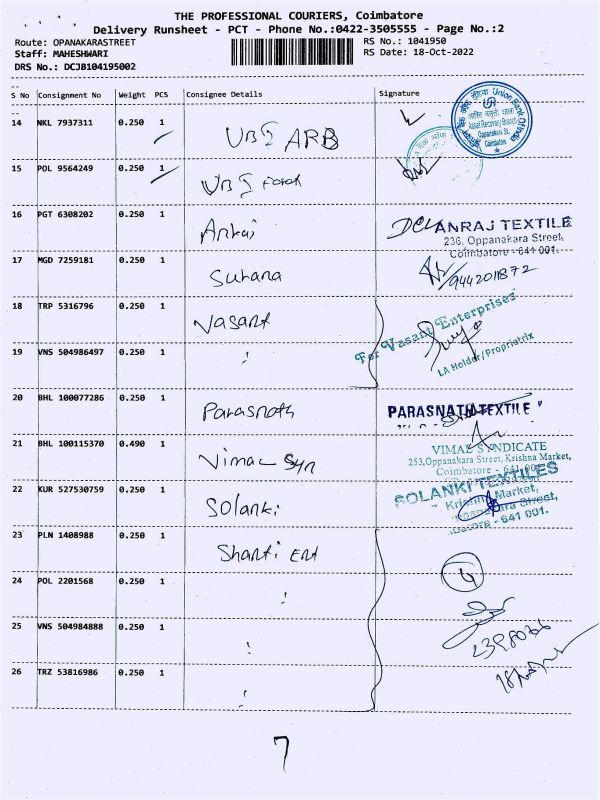 THE PROFESSIONAL COURIERS, Coimbatore
Delivery Runsheet - PCT - Phone No.:0422-3505555 - Page No.:2
Route: OPANAKARASTREET
RS No.: 1041950
Staff: MAHESHWARI
RS Date: 18-Oct-2022
DRS No.: DCJB104195002
S No Consignment No Weight PCS Consignee Details Signature
14 NKL 7937311 0.250 1 UBI ARB
Union Bank Of India
Asset Recovery Branch
Oppanakara St.,
Coimbatore
15 POL 9564249 0.250 1 UBI
16 PGT 6308202 0.250 1 Anraj
ANRAJ TEXTILE
236, Oppanakara Street,
Coimbatore - 641 001.
17 MGD 7259181 0.250 1 Surana
9442011872
18 TRP 5316796 0.250 1 Vasant
For Vasant Enterprises
LA Holder/Proprietrix
19 VNS 504986497 0.250 1 "
20 BHL 100077286 0.250 1 Parasnath
PARASNATH TEXTILE
21 BHL 100115370 0.490 1 Vimal Syn
VIMAL SYNDICATE
253,Oppanakara Street, Krishna Market,
Coimbatore - 641 001
22 KUR 527530759 0.250 1 Solanki
SOLANKI TEXTILES
Krishna Market,
Oppanakara Street,
- 641 001.
23 PLN 1408988 0.250 1 Shanti Ent
24 POL 2201568 0.250 1 "
4
25 VNS 504984888 0.250 1 "
2398076
26 TRZ 53816986 0.250 1 "
7